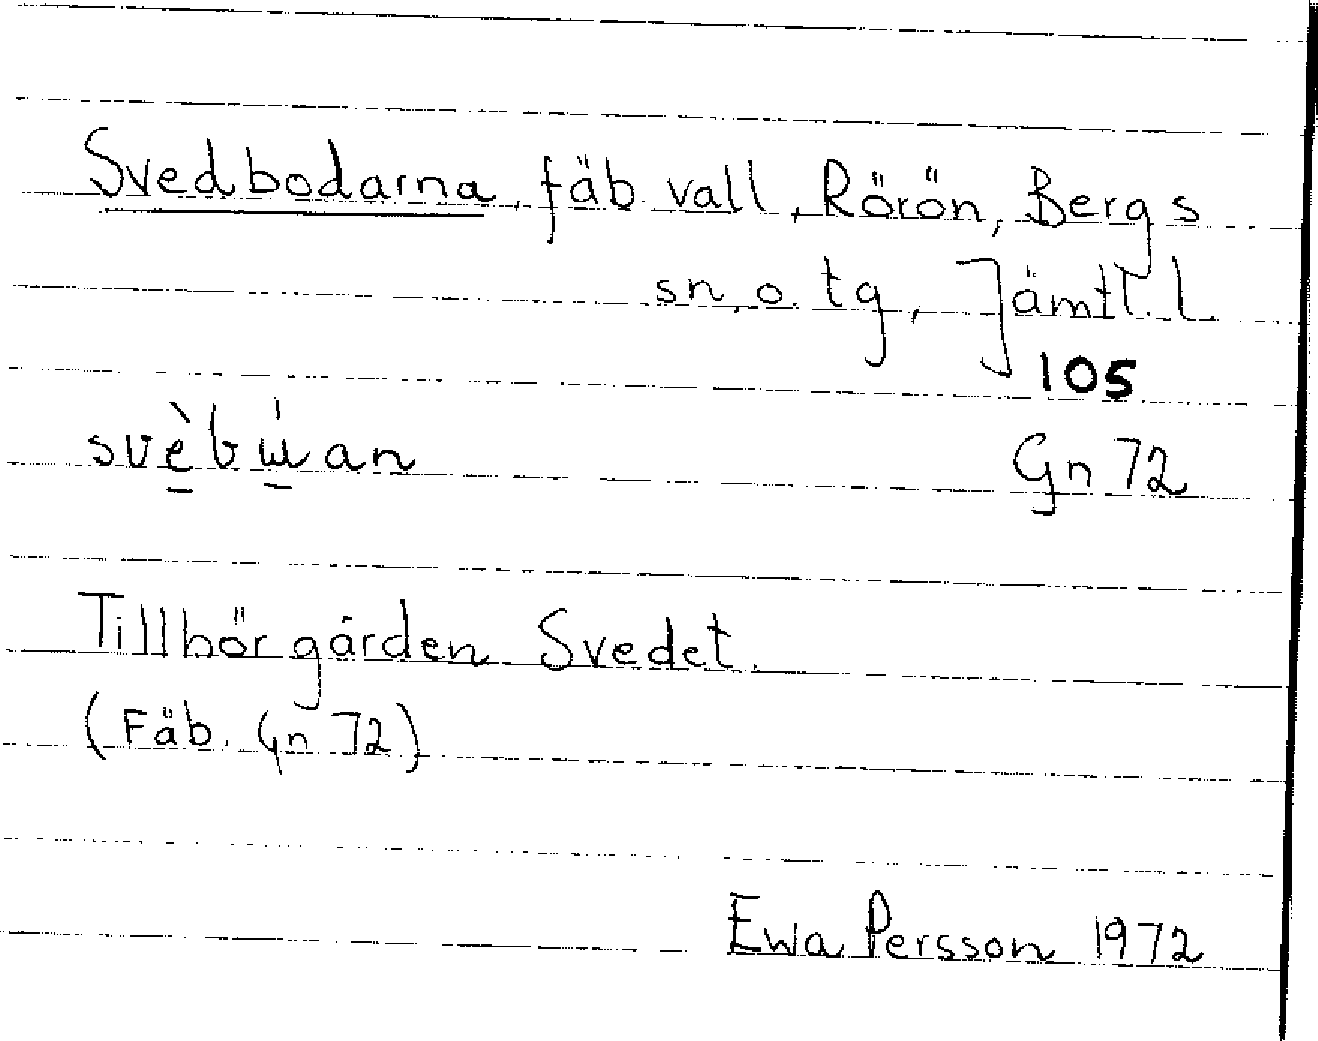 Svedbodarna, fäb.vall, Rörön, Bergs
sn. o. tg, Jämtl. l.
105
svè̱bɯ̱́an
Gn 72
Tillhör gården Svedet.
(Fäb. Gn 72)
Ewa Persson 1972